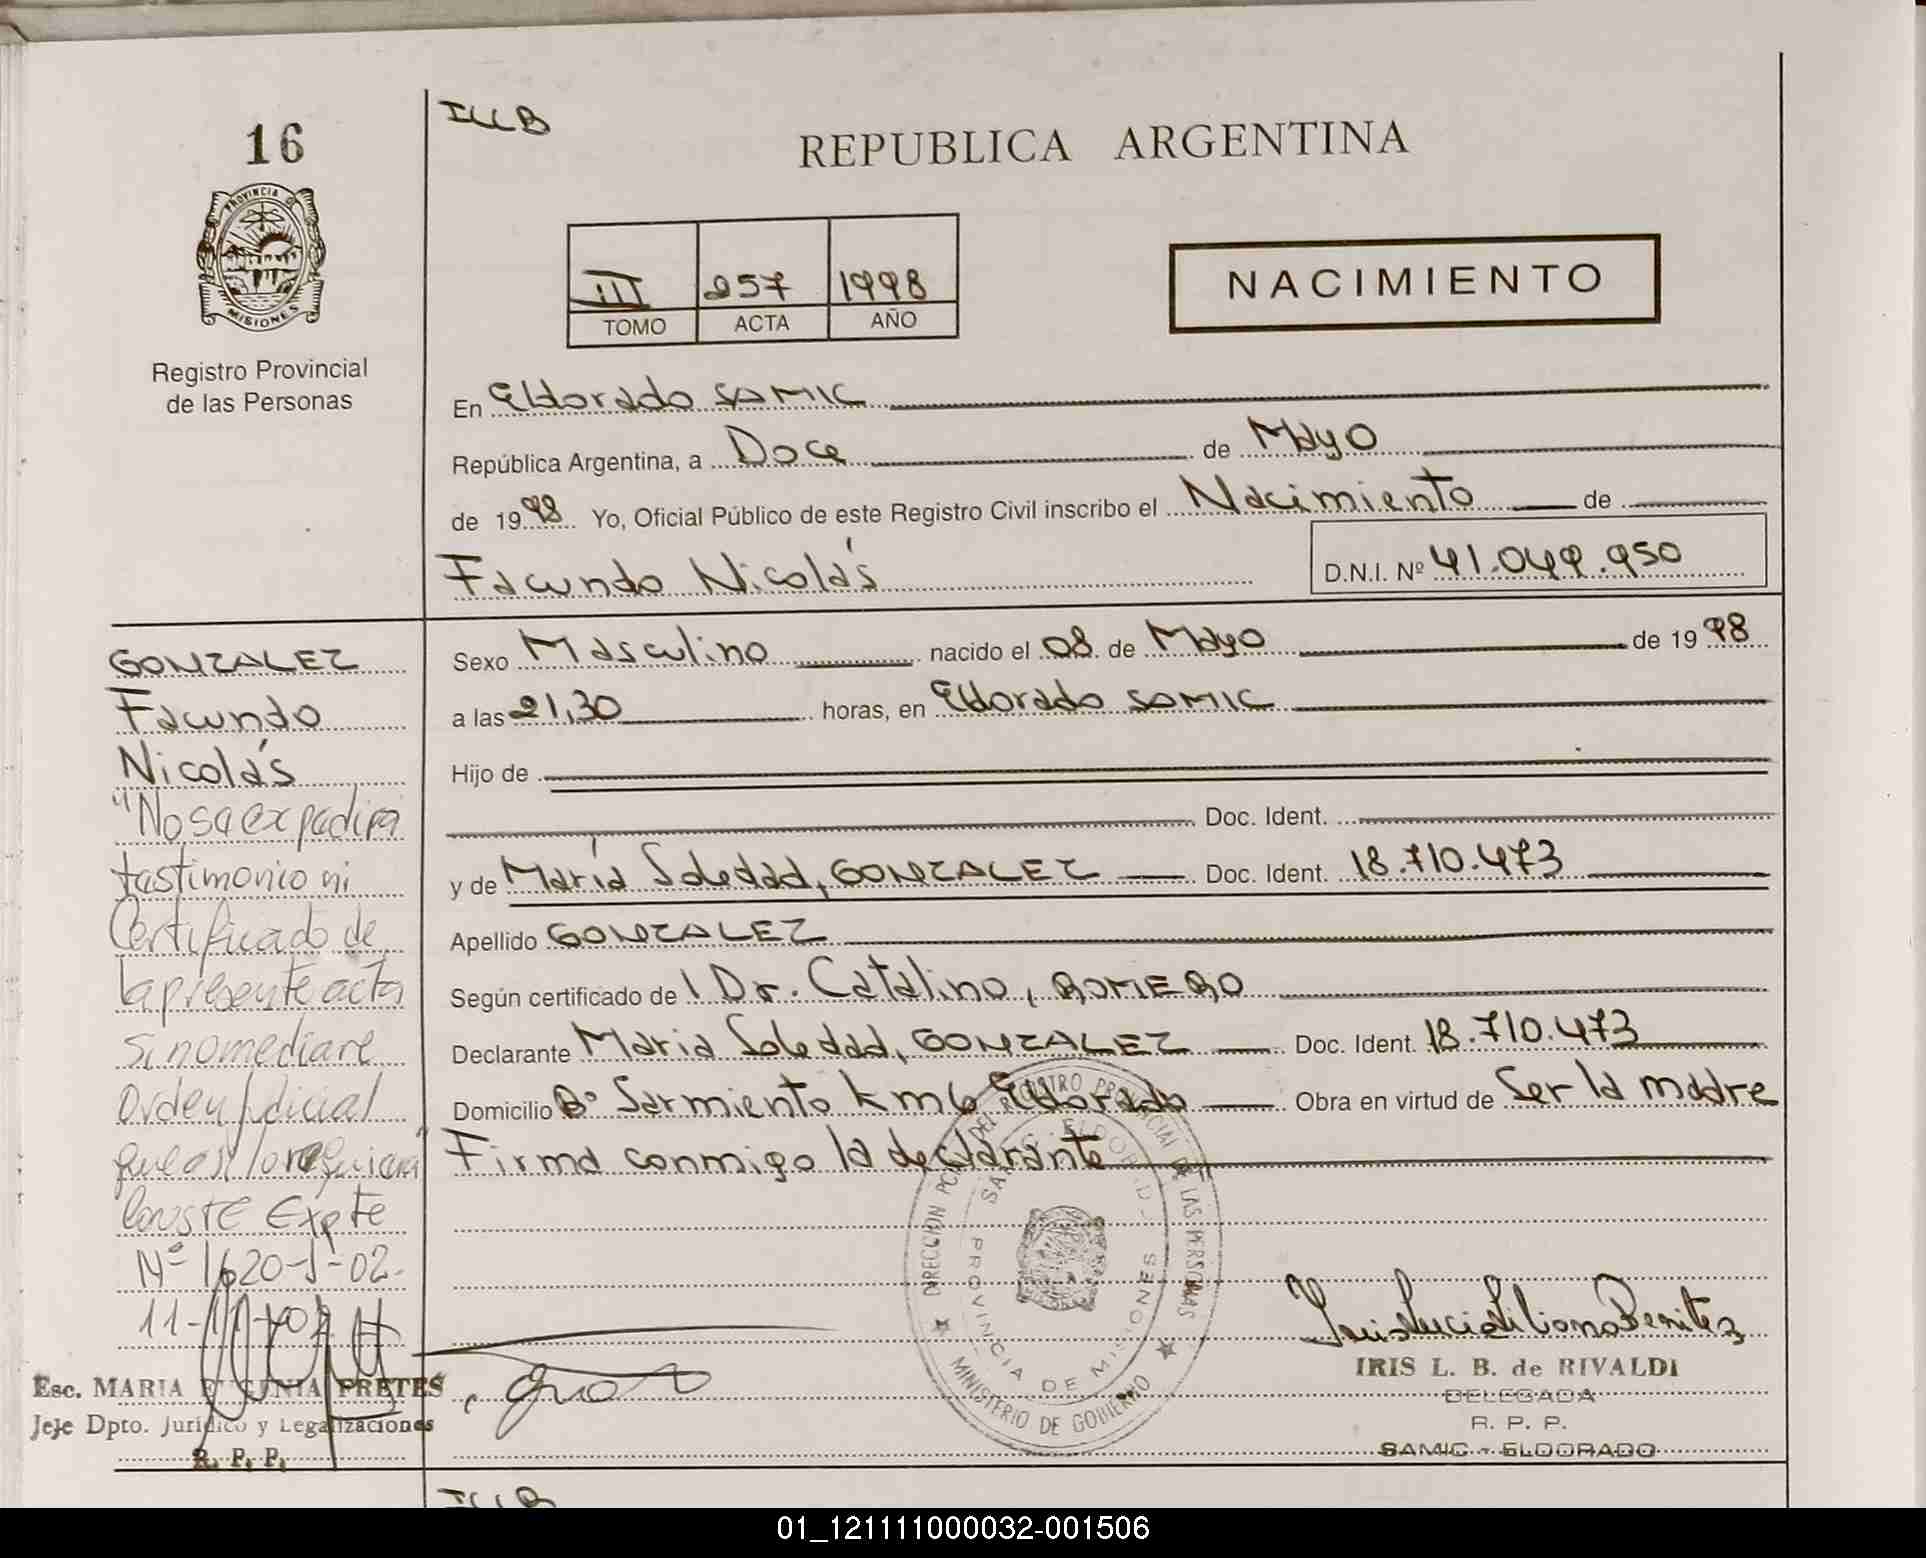 16
PROVINCIA DE
MISIONES
Registro Provincial
de las Personas
ILLB
REPUBLICA ARGENTINA
III 257 1998
TOMO ACTA AÑO
NACIMIENTO
En Eldorado SAMIC
República Argentina, a Doce de Mayo
de 1998 Yo, Oficial Público de este Registro Civil inscribo el Nacimiento de
Facundo Nicolás D.N.I. Nº 41.049.950
Sexo Masculino nacido el 08 de Mayo de 1998
a las 21,30 horas, en Eldorado SAMIC
Hijo de
Doc. Ident.
y de María Soledad, GONZALEZ Doc. Ident. 18.710.473
Apellido GONZALEZ
Según certificado de l Dr. Catalino, ROMERO
Declarante Maria Soledad, GONZALEZ Doc. Ident. 18.710.473
Domicilio Bº Sarmiento km 6 Eldorado Obra en virtud de Ser la madre
Firma conmigo la declarante
GONZALEZ
Facundo
Nicolás
"No se expedira
testimonio ni
Certificado de
la presente acta
si no mediare
Orden Judicial
que asi lo requiera"
Conste Expte
Nº 1620-J-02.
11-11-02
Esc. MARIA EUGENIA PRETES
Jefe Dpto. Jurídico y Legalizaciones
R. P. P.
DIRECCION DEL REGISTRO PROVINCIAL DE LAS PERSONAS
SAMIC - ELDORADO
PROVINCIA DE MISIONES
MINISTERIO DE GOBIERNO
Iris Lucia Liliana Benitez
IRIS L. B. de RIVALDI
DELEGADA
R. P. P.
SAMIC - ELDORADO
ILLB
01_121111000032-001506